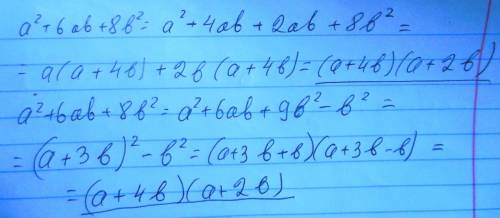 a²+6ab+8b²= a²+4ab+2ab+8b² =
= a(a+4b)+2b(a+4b)=(a+4b)(a+2b)
a²+6ab+8b²= a²+6ab+9b²-b² =
=(a+3b)²-b²=(a+3b+b)(a+3b-b) =
=(a+4b)(a+2b)